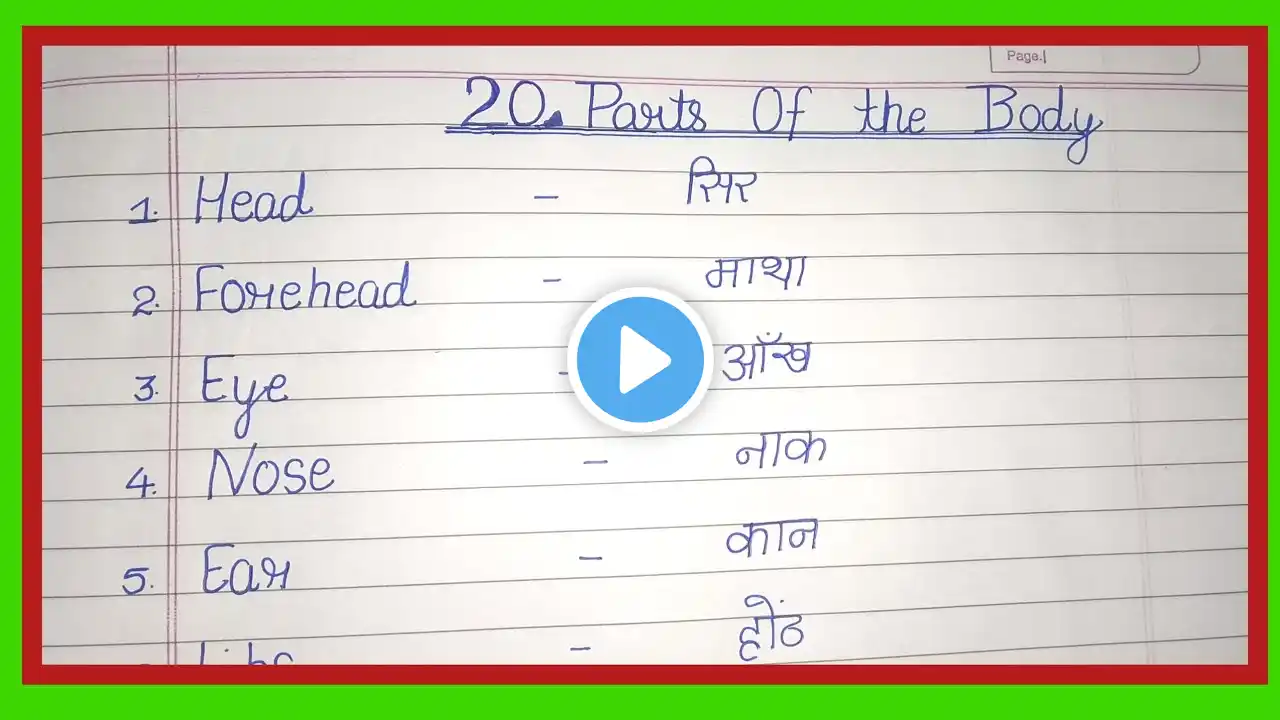 Page.
20. Parts Of the Body
1. Head - सिर
2. Forehead - माथा
3. Eye - आँख
4. Nose - नाक
5. Ear - कान
- होंठ